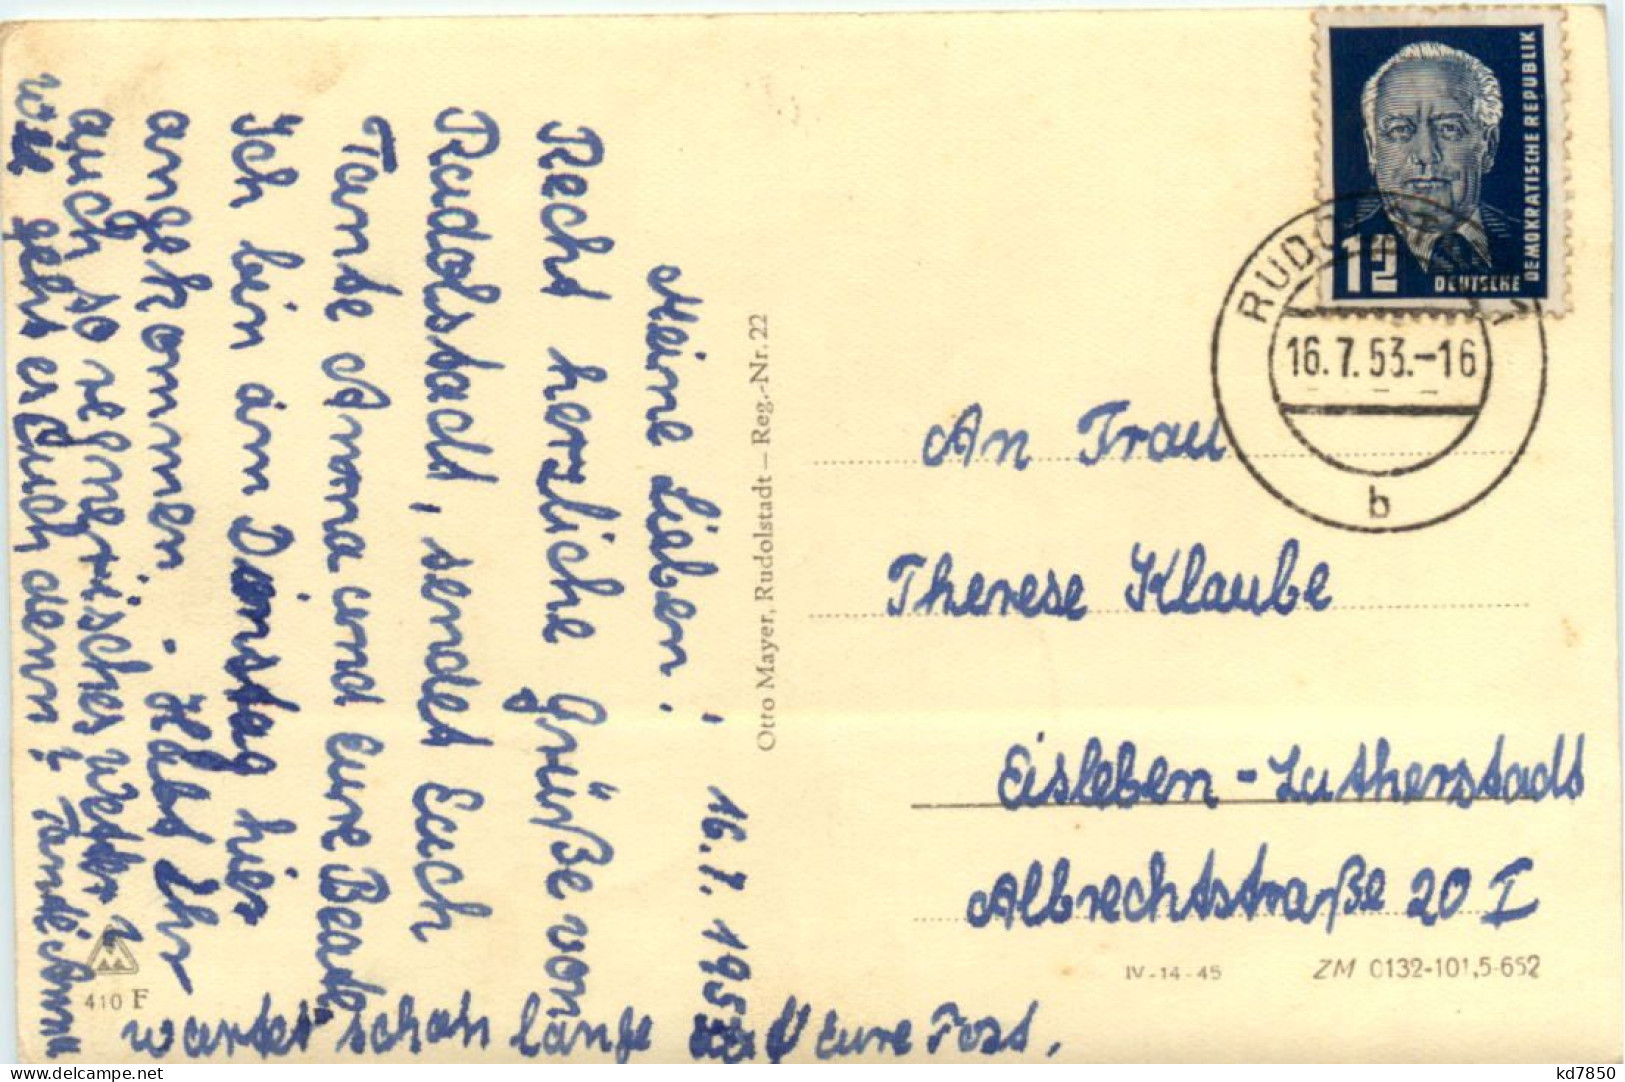 16.7.1953
Meine Lieben!
Recht herzliche Grüße von
Rudolstadt, sendet Euch
Tante Anna und Eure Beate
Ich bin am Dienstag hier
angekommen. Habt Ihr
auch so regnerisches Wetter?
wie geht es Euch denn? Tante Anna
wartet schon lange auf Eure Post.
Otto Mayer, Rudolstadt – Reg.-Nr. 22
410 F
DEUTSCHE
DEMOKRATISCHE REPUBLIK
12
16.7.53.-16
b
An Frau
Therese Klaube
Eisleben - Lutherstadt
Albrechtstraße 20 I
IV-14-45 ZM 0132-101,5-652
www.delcampe.net
kd7850